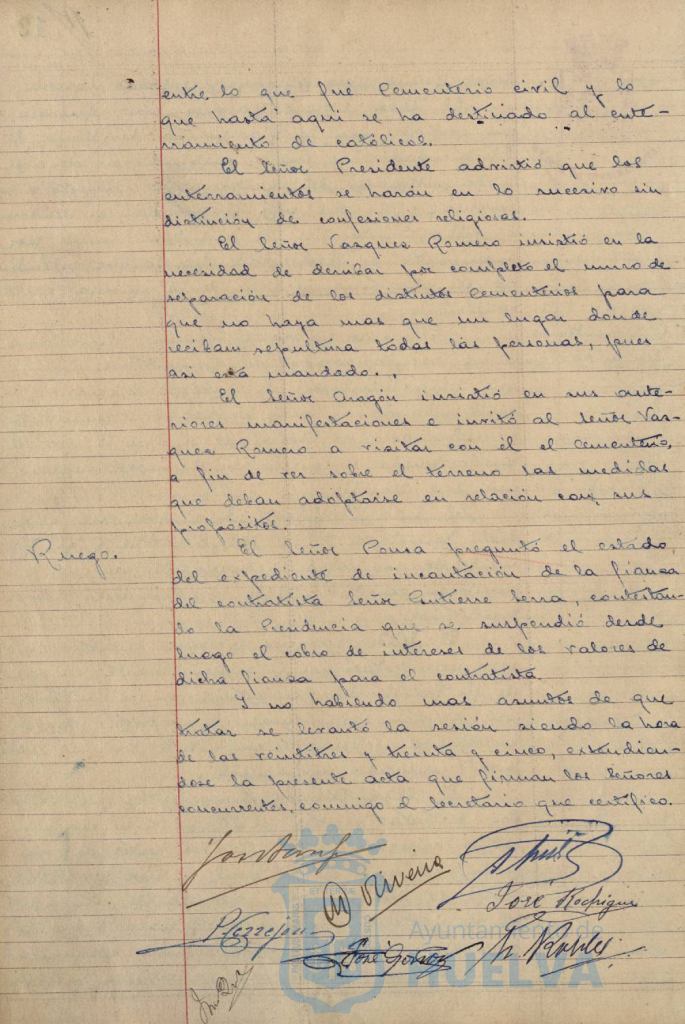 entre lo que fué Cementerio civil y lo
que hasta aqui se ha destinado al ente-
rramiento de católicos.
El Señor Presidente advirtió que los
enterramientos se harán en lo sucesivo sin
distinción de confesiones religiosas.
El Señor Vazquez Romero insistió en la
necesidad de derribar por completo el muro de
separación de los distintos Cementerios para
que no haya mas que un lugar donde
reciban sepultura todas las personas, pues
asi está mandado.
El Señor Aragón insistió en sus ante-
riores manifestaciones e invitó al Señor Vaz-
quez Romero a visitar con él el Cementerio,
a fin de ver sobre el terreno las medidas
que deban adoptarse en relación con sus
propósitos.
Ruego.
El Señor Ponsa preguntó el estado
del expediente de incautación de la fianza
del contratista Señor Gutierre Serra, contestan-
do la Presidencia que se suspendió desde
luego el cobro de intereses de los valores de
dicha fianza para el contratista.
Y no habiendo mas asuntos de que
tratar se levantó la sesión siendo la hora
de las veintitres y treinta y cinco, extendien-
dose la presente acta que firman los Señores
concurrentes, conmigo el Secretario que certifico.
Oliveira
José Rodrigue
P. Terrejon
José
Robles
Ayuntamiento de
HUELVA